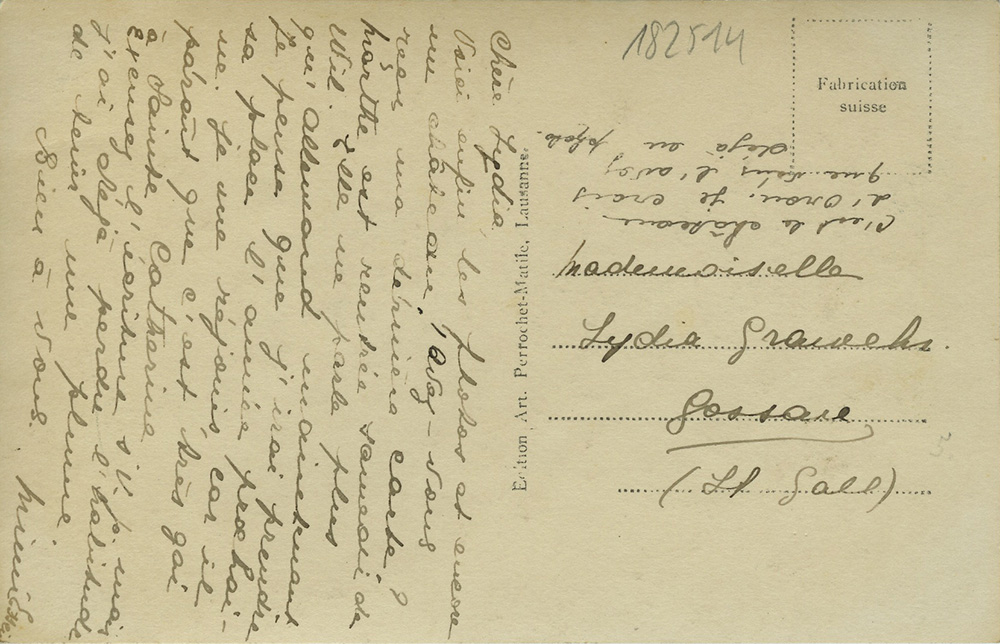 Chère Lydia,
Voici enfin les photos et encore
un château. Avez-vous
reçu ma dernière carte?
Marthe est rentrée samedi de
Wil. Elle ne parle plus
qu'allemand maintenant
Je pense que j'irai prendre
sa place l'année prochai-
ne. Je me réjouis car il
paraît que c'est très gai
à Sainte Catherine
Excusez l'écriture s.v.p. mais
j'ai déjà perdu l'habitude
de tenir une plume
Bien à vous.
Edition Art. Perrochet-Matile, Lausanne.
182514
Fabrication
suisse
C'est le château
d'Oron, je crois
que vous l'avez
déjà en photo.
Mademoiselle
Lydia
Gossau
(St Gall)